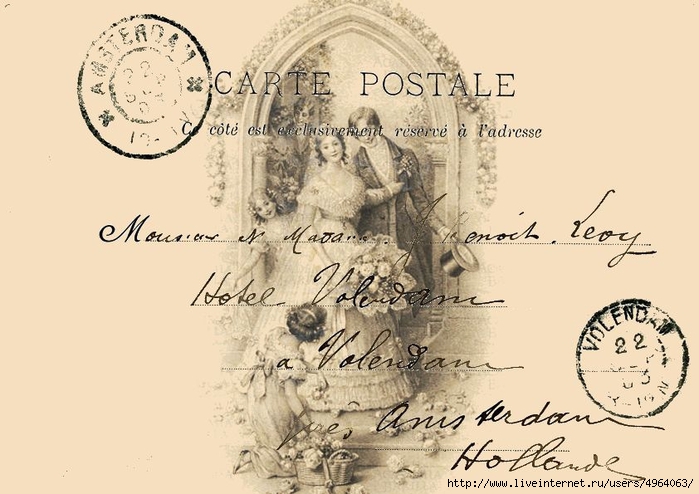 AMSTERDAM
CARTE POSTALE
Ce côté est exclusivement réservé à l'adresse
Monsieur et Madame J Benoit Levy
Hotel Volendam
a Volendam
VOLENDAM
22
près Amsterdam
Hollande
http://www.liveinternet.ru/users/4964063/